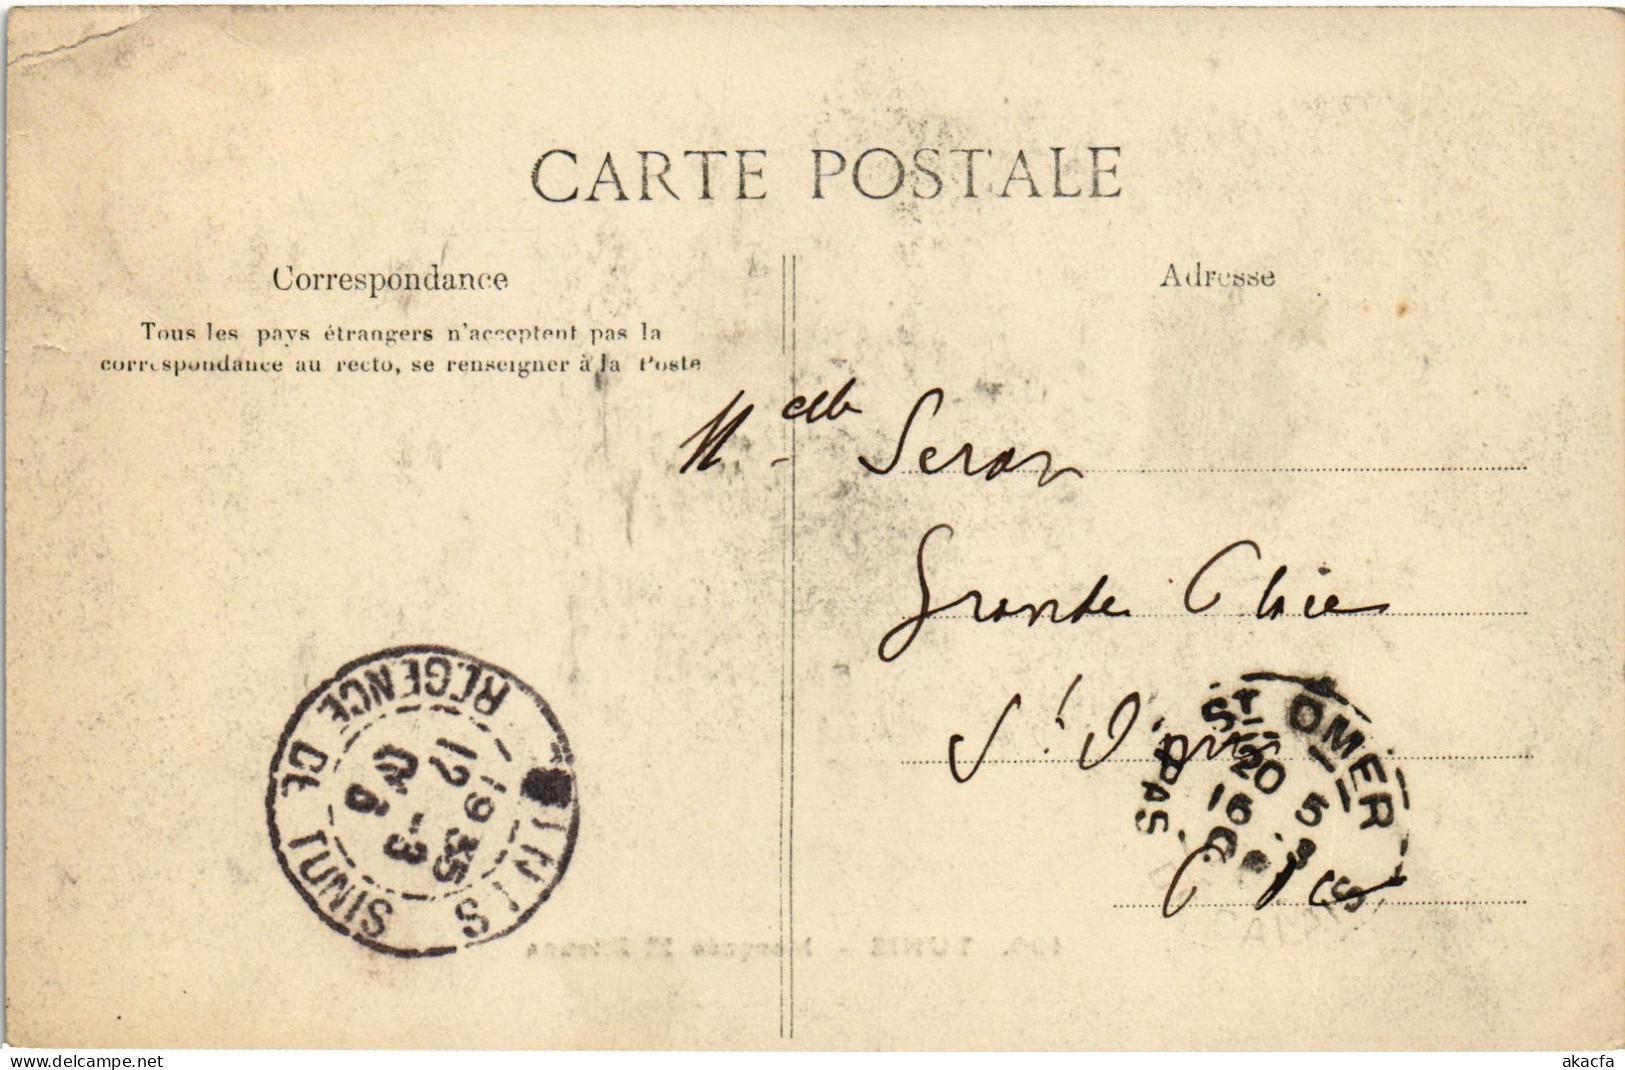 CARTE POSTALE
Correspondance
Tous les pays étrangers n'acceptent pas la
correspondance au recto, se renseigner à la Poste
Adresse
Melle Seron
Grande Place
St Omer
P. d. C.
TUNIS
RÉGENCE DE TUNIS
19 35
12 -3
06
ST OMER
PAS
20 5
16 3
akacfa